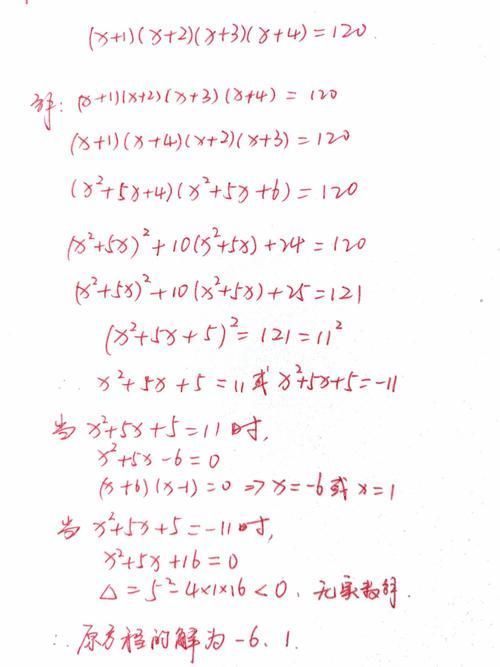 (x+1)(x+2)(x+3)(x+4)=120.
解: (x+1)(x+2)(x+3)(x+4) = 120
(x+1)(x+4)(x+2)(x+3)=120
(x²+5x+4)(x²+5x+6)=120
(x²+5x)²+10(x²+5x)+24=120
(x²+5x)²+10(x²+5x)+25=121
(x²+5x+5)²=121=11²
∴ x²+5x+5=11或x²+5x+5=-11
当x²+5x+5=11时,
x²+5x-6=0
(x+6)(x-1)=0 => x=-6或x=1
当x²+5x+5=-11时,
x²+5x+16=0
△=5²-4×1×16<0. 无实数解.
∴原方程的解为-6. 1.